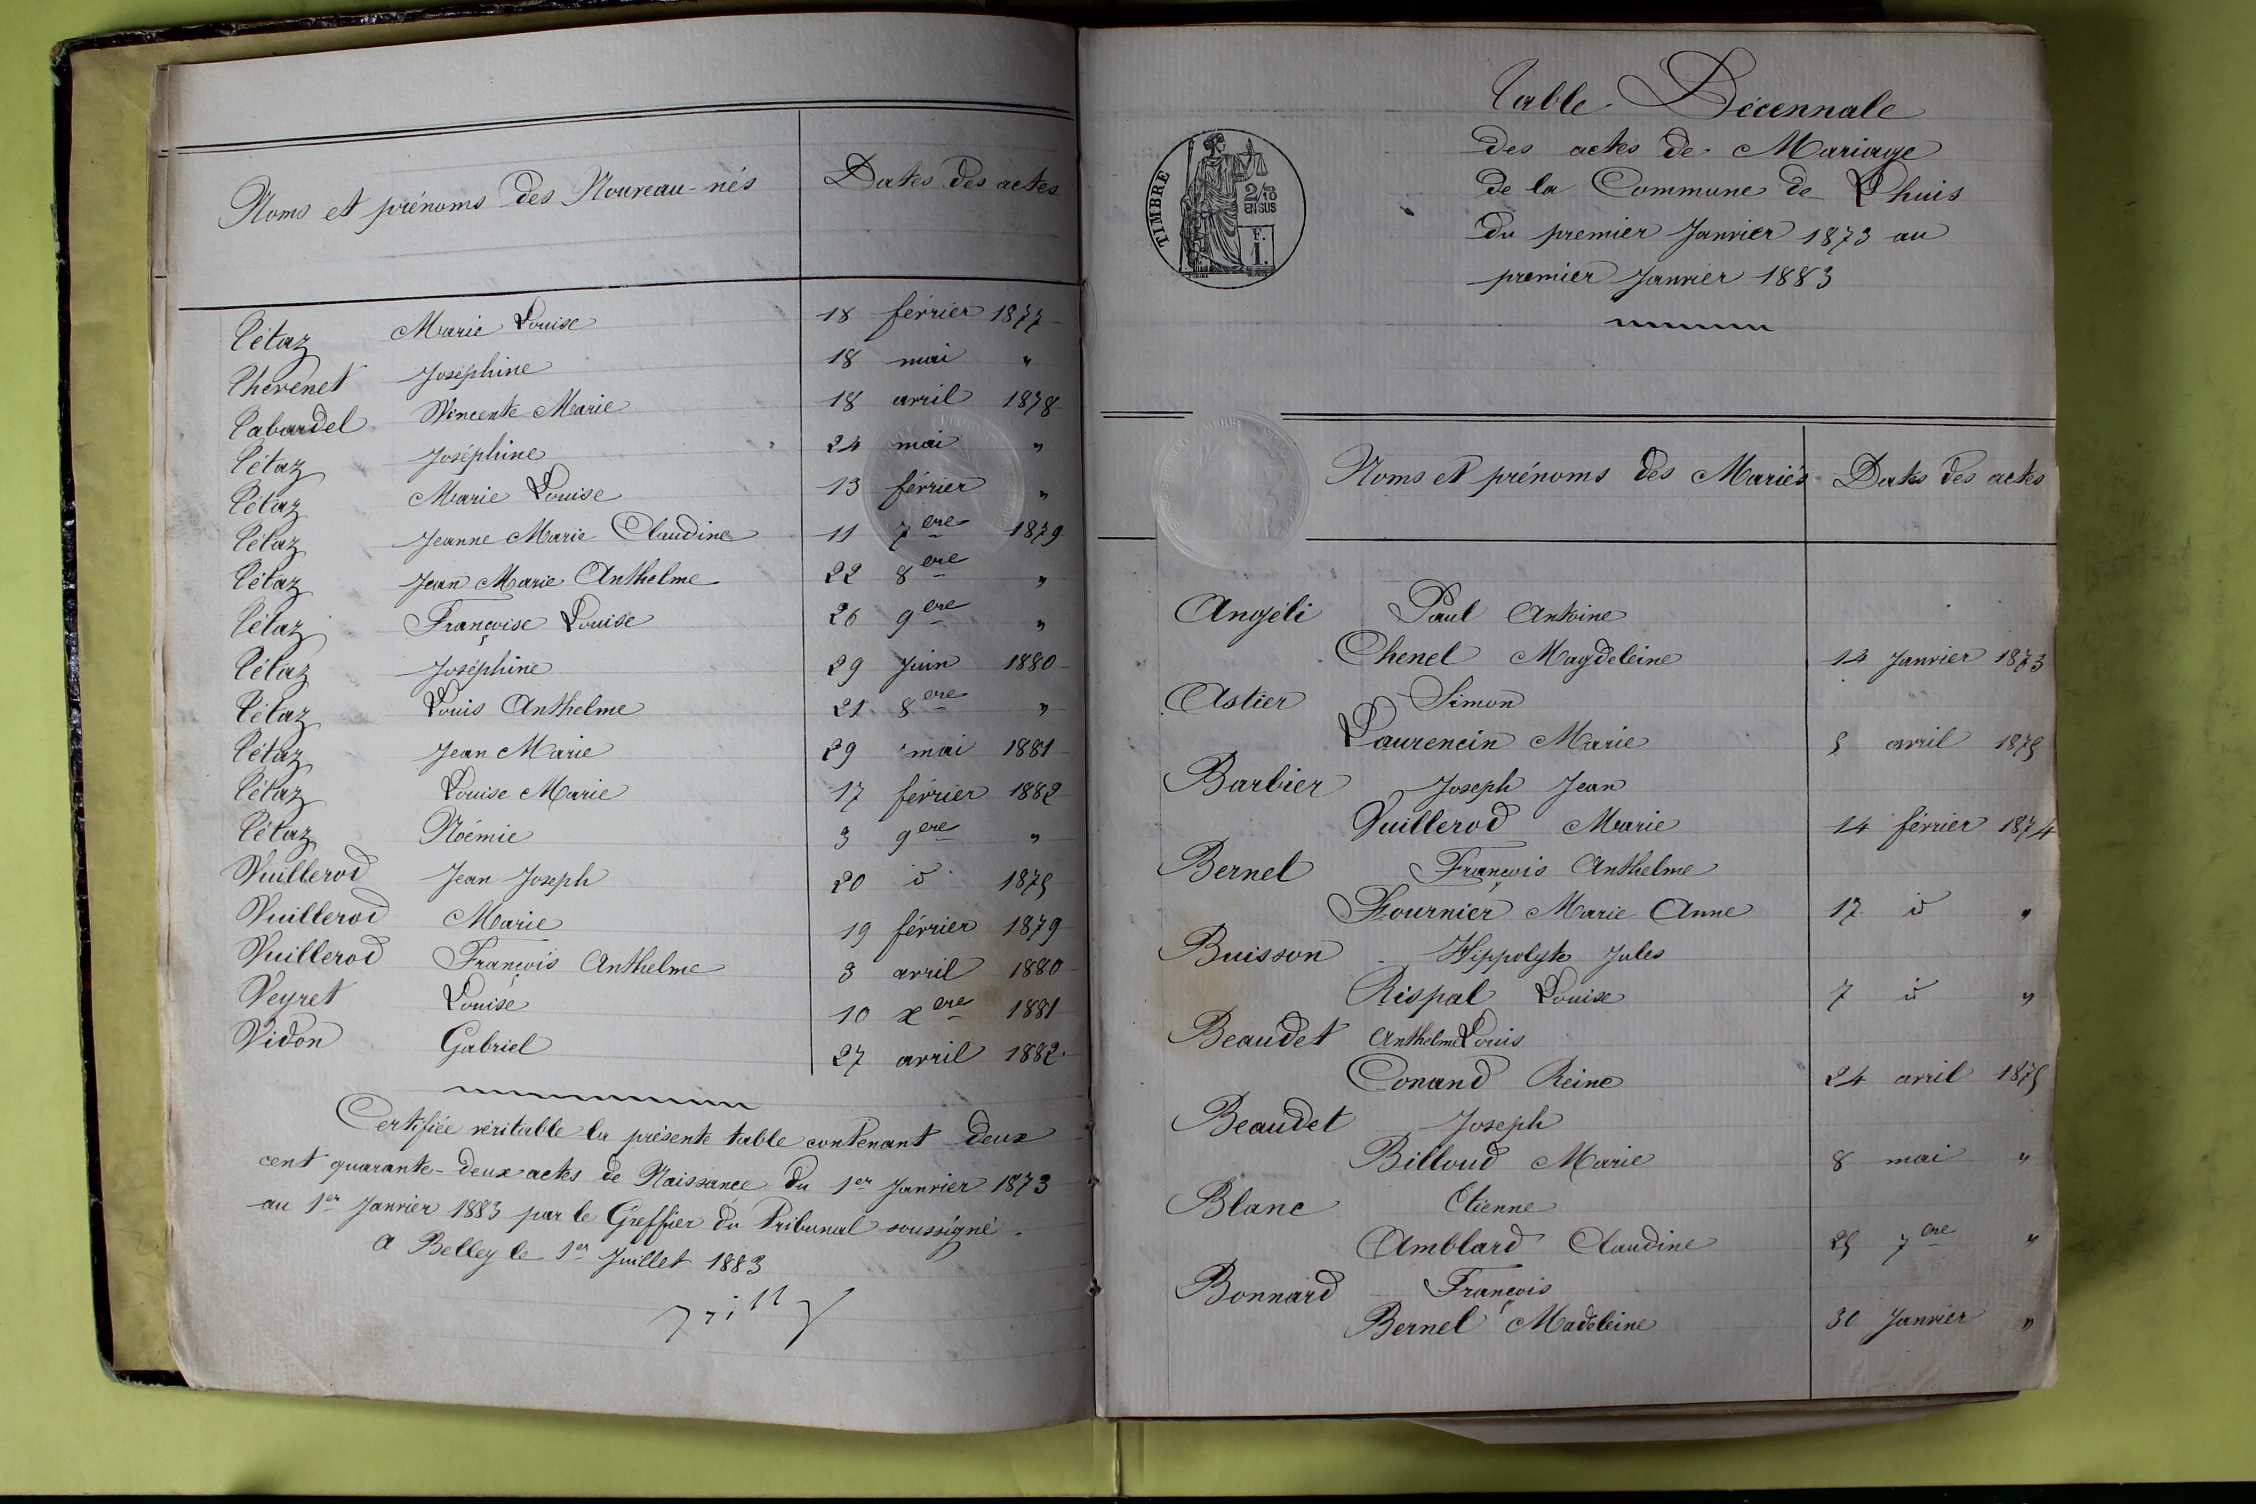 Noms et prénoms des Nouveau-nés Dates des actes
Tétaz Marie Louise 18 février 1877
Thevenet Joséphine 18 mai "
Tabardel Vincente Marie 18 avril 1878
Tétaz Joséphine 24 mai "
Tétaz Marie Louise 13 février "
Tétaz Jeanne Marie Claudine 11 7bre 1879
Tétaz Jean Marie Anthelme 22 8bre "
Tétaz Françoise Louise 26 9bre "
Tétaz Joséphine 29 Juin 1880
Tétaz Louis Anthelme 21 8bre "
Tétaz Jean Marie 29 mai 1881
Tétaz Louise Marie 17 février 1882
Tétaz Noémie 3 9bre "
Vuillerod Jean Joseph 20 d 1875
Vuillerod Marie 19 février 1879
Vuillerod François Anthelme 3 avril 1880
Veyret Louise 10 xbre 1881
Vidon Gabriel 27 avril 1882
Certifiée véritable la présente table contenant deux
cent quarante-deux actes de Naissance du 1er Janvier 1873
au 1er Janvier 1883 par le Greffier du Tribunal soussigné.
A Belley le 1er Juillet 1883
TIMBRE
2/10
EN SUS
F.
1.
Table Décennale
des actes de Mariage
de la Commune de Lhuis
du premier Janvier 1873 au
premier Janvier 1883
Noms et prénoms des Mariés Dates des actes
Angéli Paul Antoine
Chenel Magdeleine 14 Janvier 1873
Astier Simon
Laurencin Marie 5 avril 1875
Barbier Joseph Jean
Vuillerod Marie 14 février 1874
Bernel François Anthelme
Fournier Marie Anne 17 d "
Buisson Hippolyte Jules
Rispal Louise 7 d "
Beaudet Anthelme Louis
Conand Reine 24 avril 1875
Beaudet Joseph
Billoud Marie 8 mai "
Blanc Etienne
Amblard Claudine 25 7bre "
Bonnard François
Bernel Madeleine 30 Janvier "